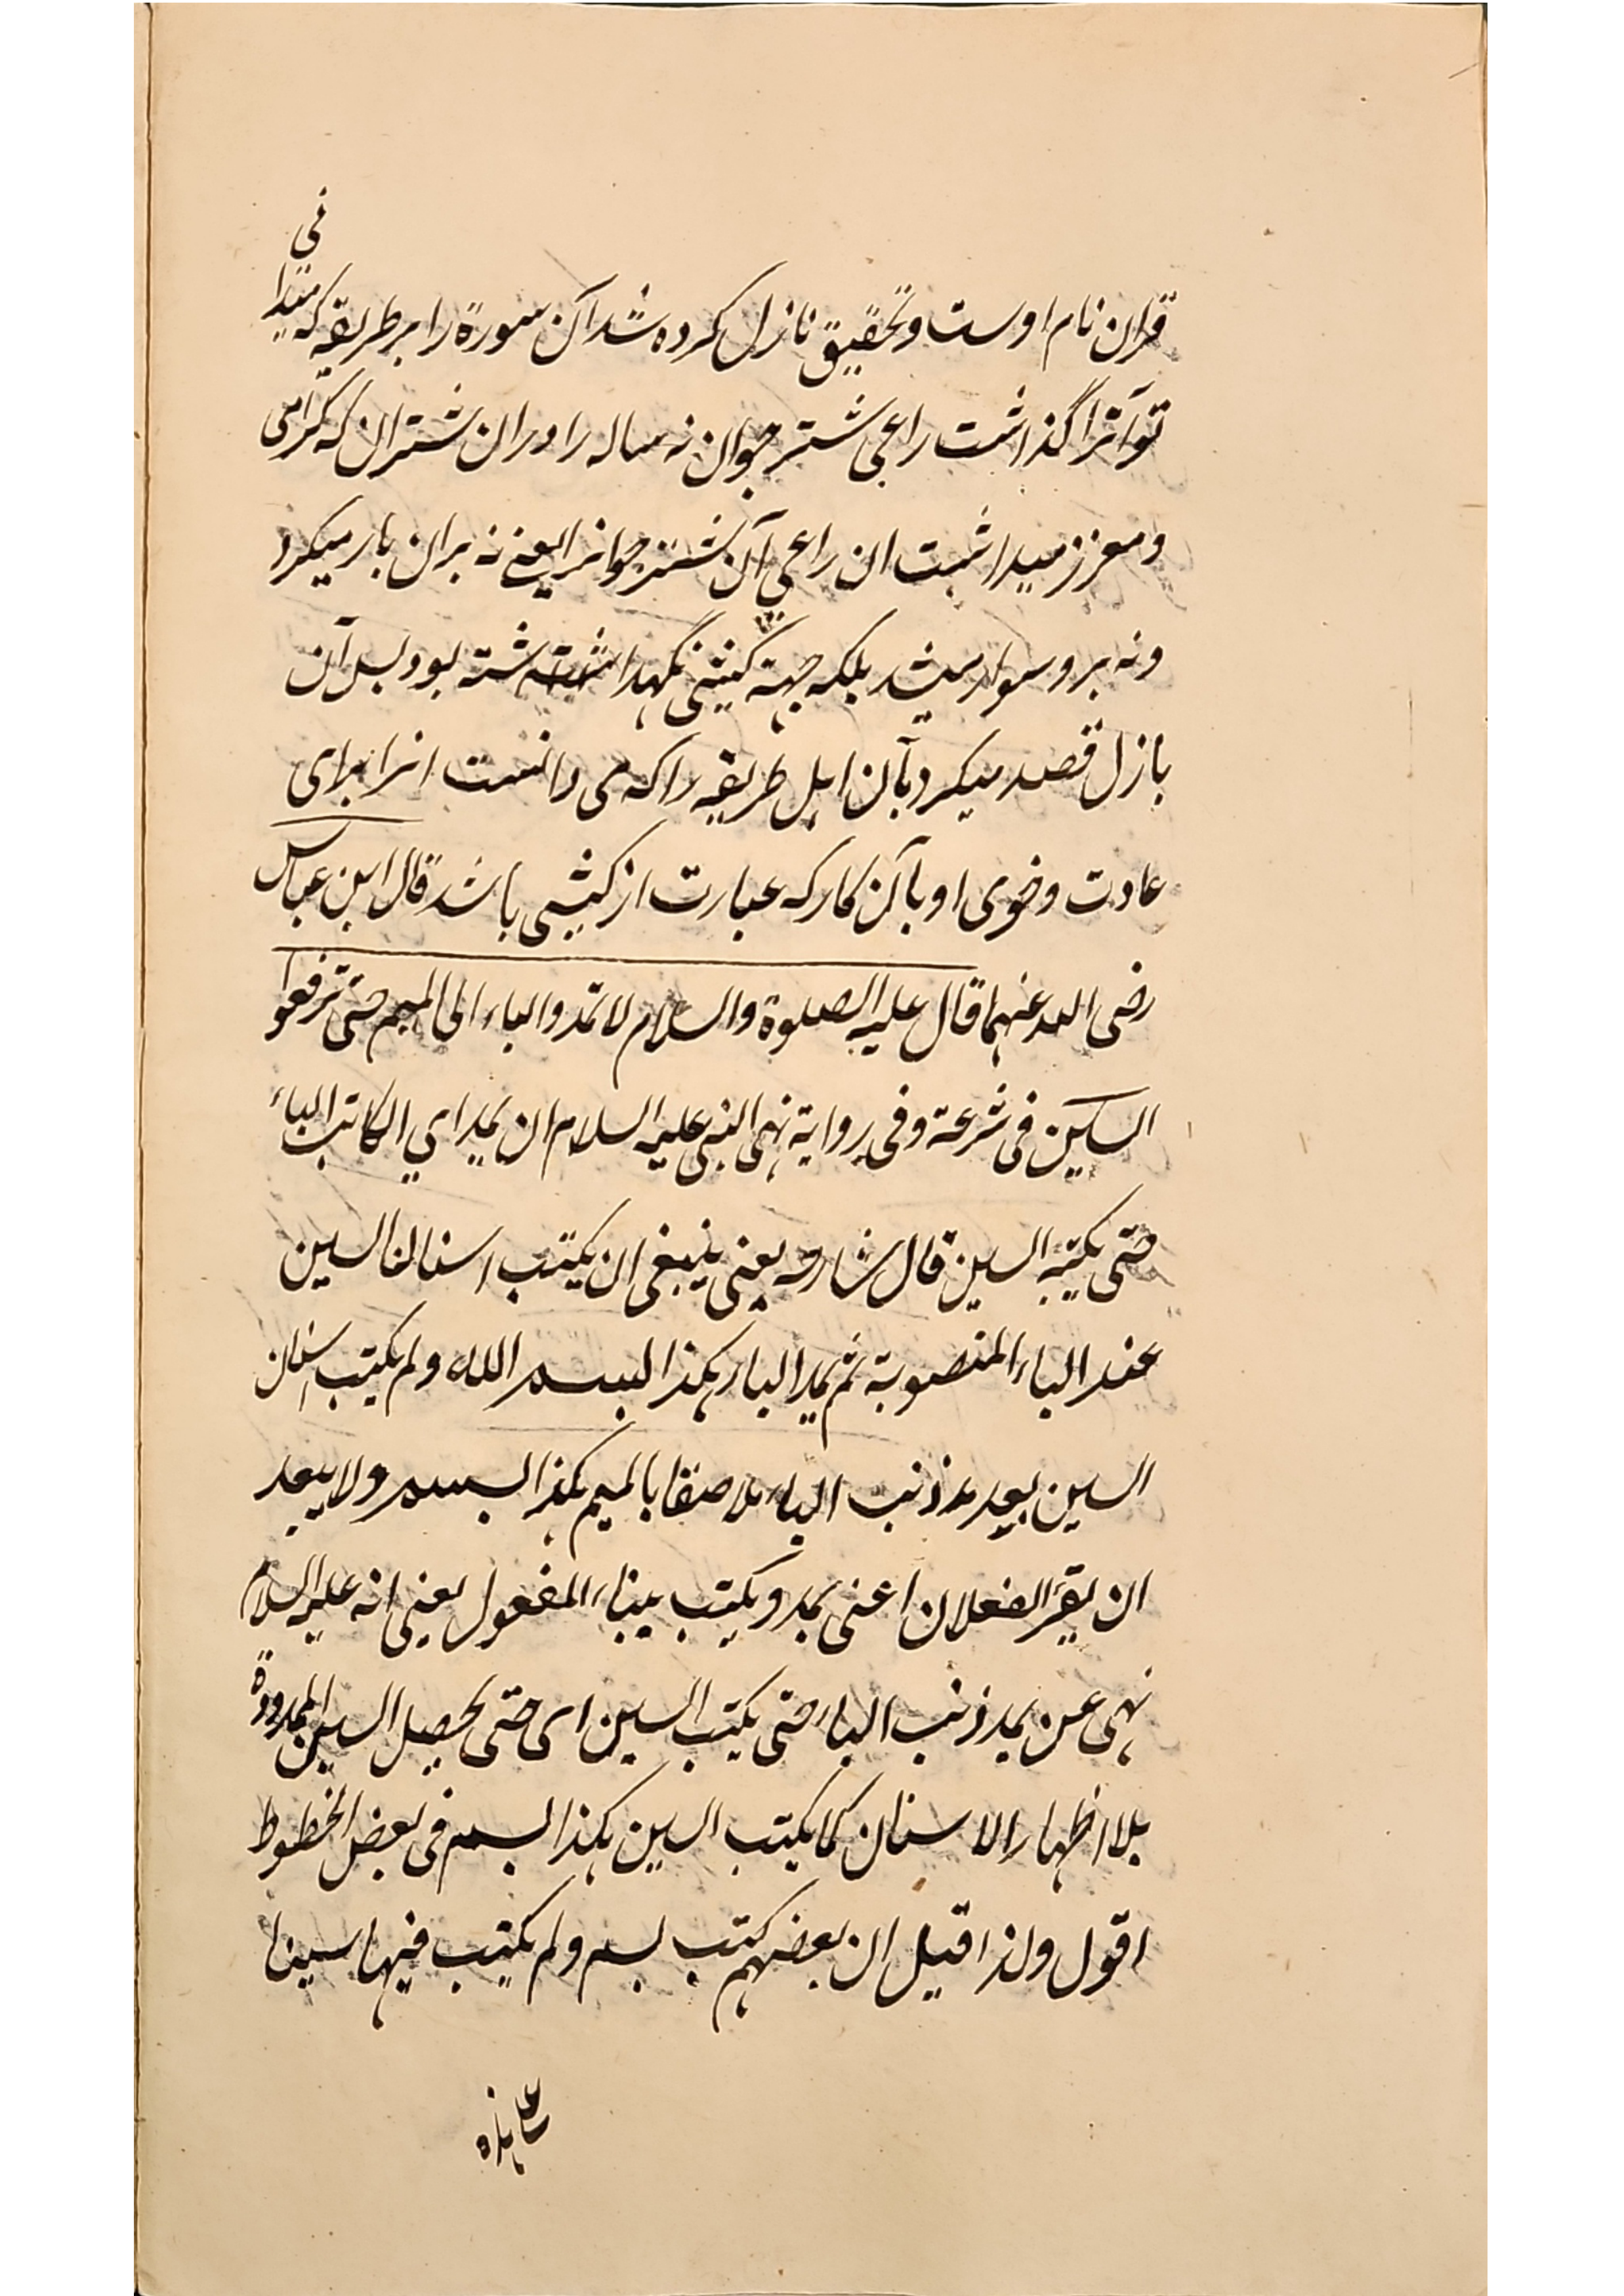 قران نام اوست و تحقیق نازل کرده شد آن سورة را بر طریقه که میدا
نی
تو آنرا گذاشت راعی شتر جوان نه ساله را دران شتران که کرامی
و معزز میداشت ان راعی آن شتر جوانرا یعنے نه بران بار میکرد
ونه برو سوار میشد بلکه جهته کشنی نگهداشته شته بود بسل آن
بازل قصد میکرد بآن ابل طریقه را که می دانست انرا برای
عادت وخوی او بآن کار که عبارت از کشی باشد قال ابن عباس
رضی الله عنهما قال علیه الصلوة والسلام لا تمدوا الباء الی المیم حتی ترفعوا
السین فی شرعة وفی روایة نهی النبی علیه السلام ان یمد ای الکاتب الباء
حتی یکتب السین قال شارحه یعنی ینبغی ان یکتب اسنان السین
عند الباء المنصوبة ثم یمد الباء هکذا بسم الله ولم یکتب اسنان
السین بعد مد ذنب الباء ملاصقا بالمیم هکذا بسم ولا یبعد
ان یقرَ الفعلان اعنی یمد و یکتب ببناء المفعول یعنی انه علیه السلام
نهی عن یمد ذنب الباء حتی یکتب السین ای حتی یحصل السین الممدودة
بلا اظهار الاسنان کما یکتب السین هکذا بسم فی بعض الخطوط
اقول ولذا قیل ان بعضهم کتب بسم ولم یکتب فیها سینا